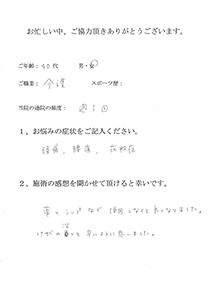 お忙しい中、ご協力頂きありがとうございます。
ご年齢：50代 男・女
ご職業：介護 スポーツ歴：
当院の通院の頻度： 週1回
1、お悩みの症状をご記入ください。
頭痛、腰痛、花粉症
2、施術の感想を聞かせて頂けると幸いです。
薬とシップなど 使用しなくても良くなりました。
けがの 治りも早いように思いました。